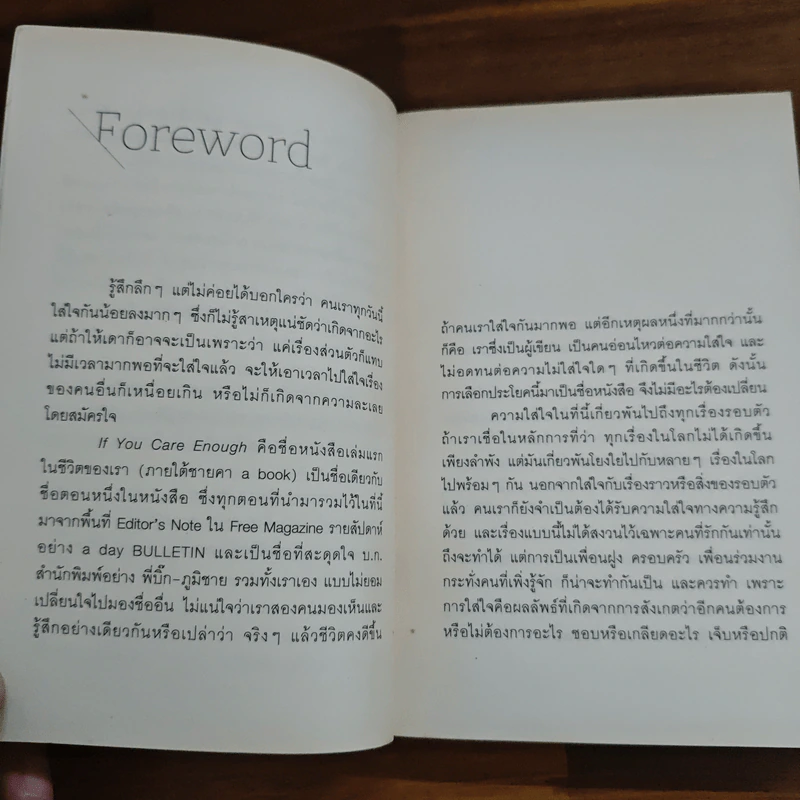 Foreword
รู้สึกลึกๆ แต่ไม่ค่อยได้บอกใครว่า คนเราทุกวันนี้
ใส่ใจกันน้อยลงมากๆ ซึ่งก็ไม่รู้สาเหตุแน่ชัดว่าเกิดจากอะไร
แต่ถ้าให้เดาก็อาจจะเป็นเพราะว่า แค่เรื่องส่วนตัวก็แทบ
ไม่มีเวลามากพอที่จะใส่ใจแล้ว จะให้เอาเวลาไปใส่ใจเรื่อง
ของคนอื่นก็เหนื่อยเกิน หรือไม่ก็เกิดจากความละเลย
โดยสมัครใจ
If You Care Enough คือชื่อหนังสือเล่มแรก
ในชีวิตของเรา (ภายใต้ชายคา a book) เป็นชื่อเดียวกับ
ชื่อตอนหนึ่งในหนังสือ ซึ่งทุกตอนที่นำมารวมไว้ในที่นี้
มาจากพื้นที่ Editor's Note ใน Free Magazine รายสัปดาห์
อย่าง a day BULLETIN และเป็นชื่อที่สะดุดใจ บ.ก.
สำนักพิมพ์อย่าง พี่บิ๊ก-ภูมิชาย รวมทั้งเราเอง แบบไม่ยอม
เปลี่ยนใจไปมองชื่ออื่น ไม่แน่ใจว่าเราสองคนมองเห็นและ
รู้สึกอย่างเดียวกันหรือเปล่าว่า จริงๆ แล้วชีวิตคงดีขึ้น
ถ้าคนเราใส่ใจกันมากพอ แต่อีกเหตุผลหนึ่งที่มากกว่านั้น
ก็คือ เราซึ่งเป็นผู้เขียน เป็นคนอ่อนไหวต่อความใส่ใจ และ
ไม่อดทนต่อความไม่ใส่ใจใดๆ ที่เกิดขึ้นในชีวิต ดังนั้น
การเลือกประโยคนี้มาเป็นชื่อหนังสือ จึงไม่มีอะไรต้องเปลี่ยน
ความใส่ใจในที่นี้เกี่ยวพันไปถึงทุกเรื่องรอบตัว
ถ้าเราเชื่อในหลักการที่ว่า ทุกเรื่องในโลกไม่ได้เกิดขึ้น
เพียงลำพัง แต่มันเกี่ยวพันโยงใยไปกับหลายๆ เรื่องในโลก
ไปพร้อมๆ กัน นอกจากใส่ใจกับเรื่องราวหรือสิ่งของรอบตัว
แล้ว คนเราก็ยังจำเป็นต้องได้รับความใส่ใจทางความรู้สึก
ด้วย และเรื่องแบบนี้ไม่ได้สงวนไว้เฉพาะคนที่รักกันเท่านั้น
ถึงจะทำได้ แต่การเป็นเพื่อนฝูง ครอบครัว เพื่อนร่วมงาน
กระทั่งคนที่เพิ่งรู้จัก ก็น่าจะทำกันเป็น และควรทำ เพราะ
การใส่ใจคือผลลัพธ์ที่เกิดจากการสังเกตว่าอีกคนต้องการ
หรือไม่ต้องการอะไร ชอบหรือเกลียดอะไร เจ็บหรือปกติ